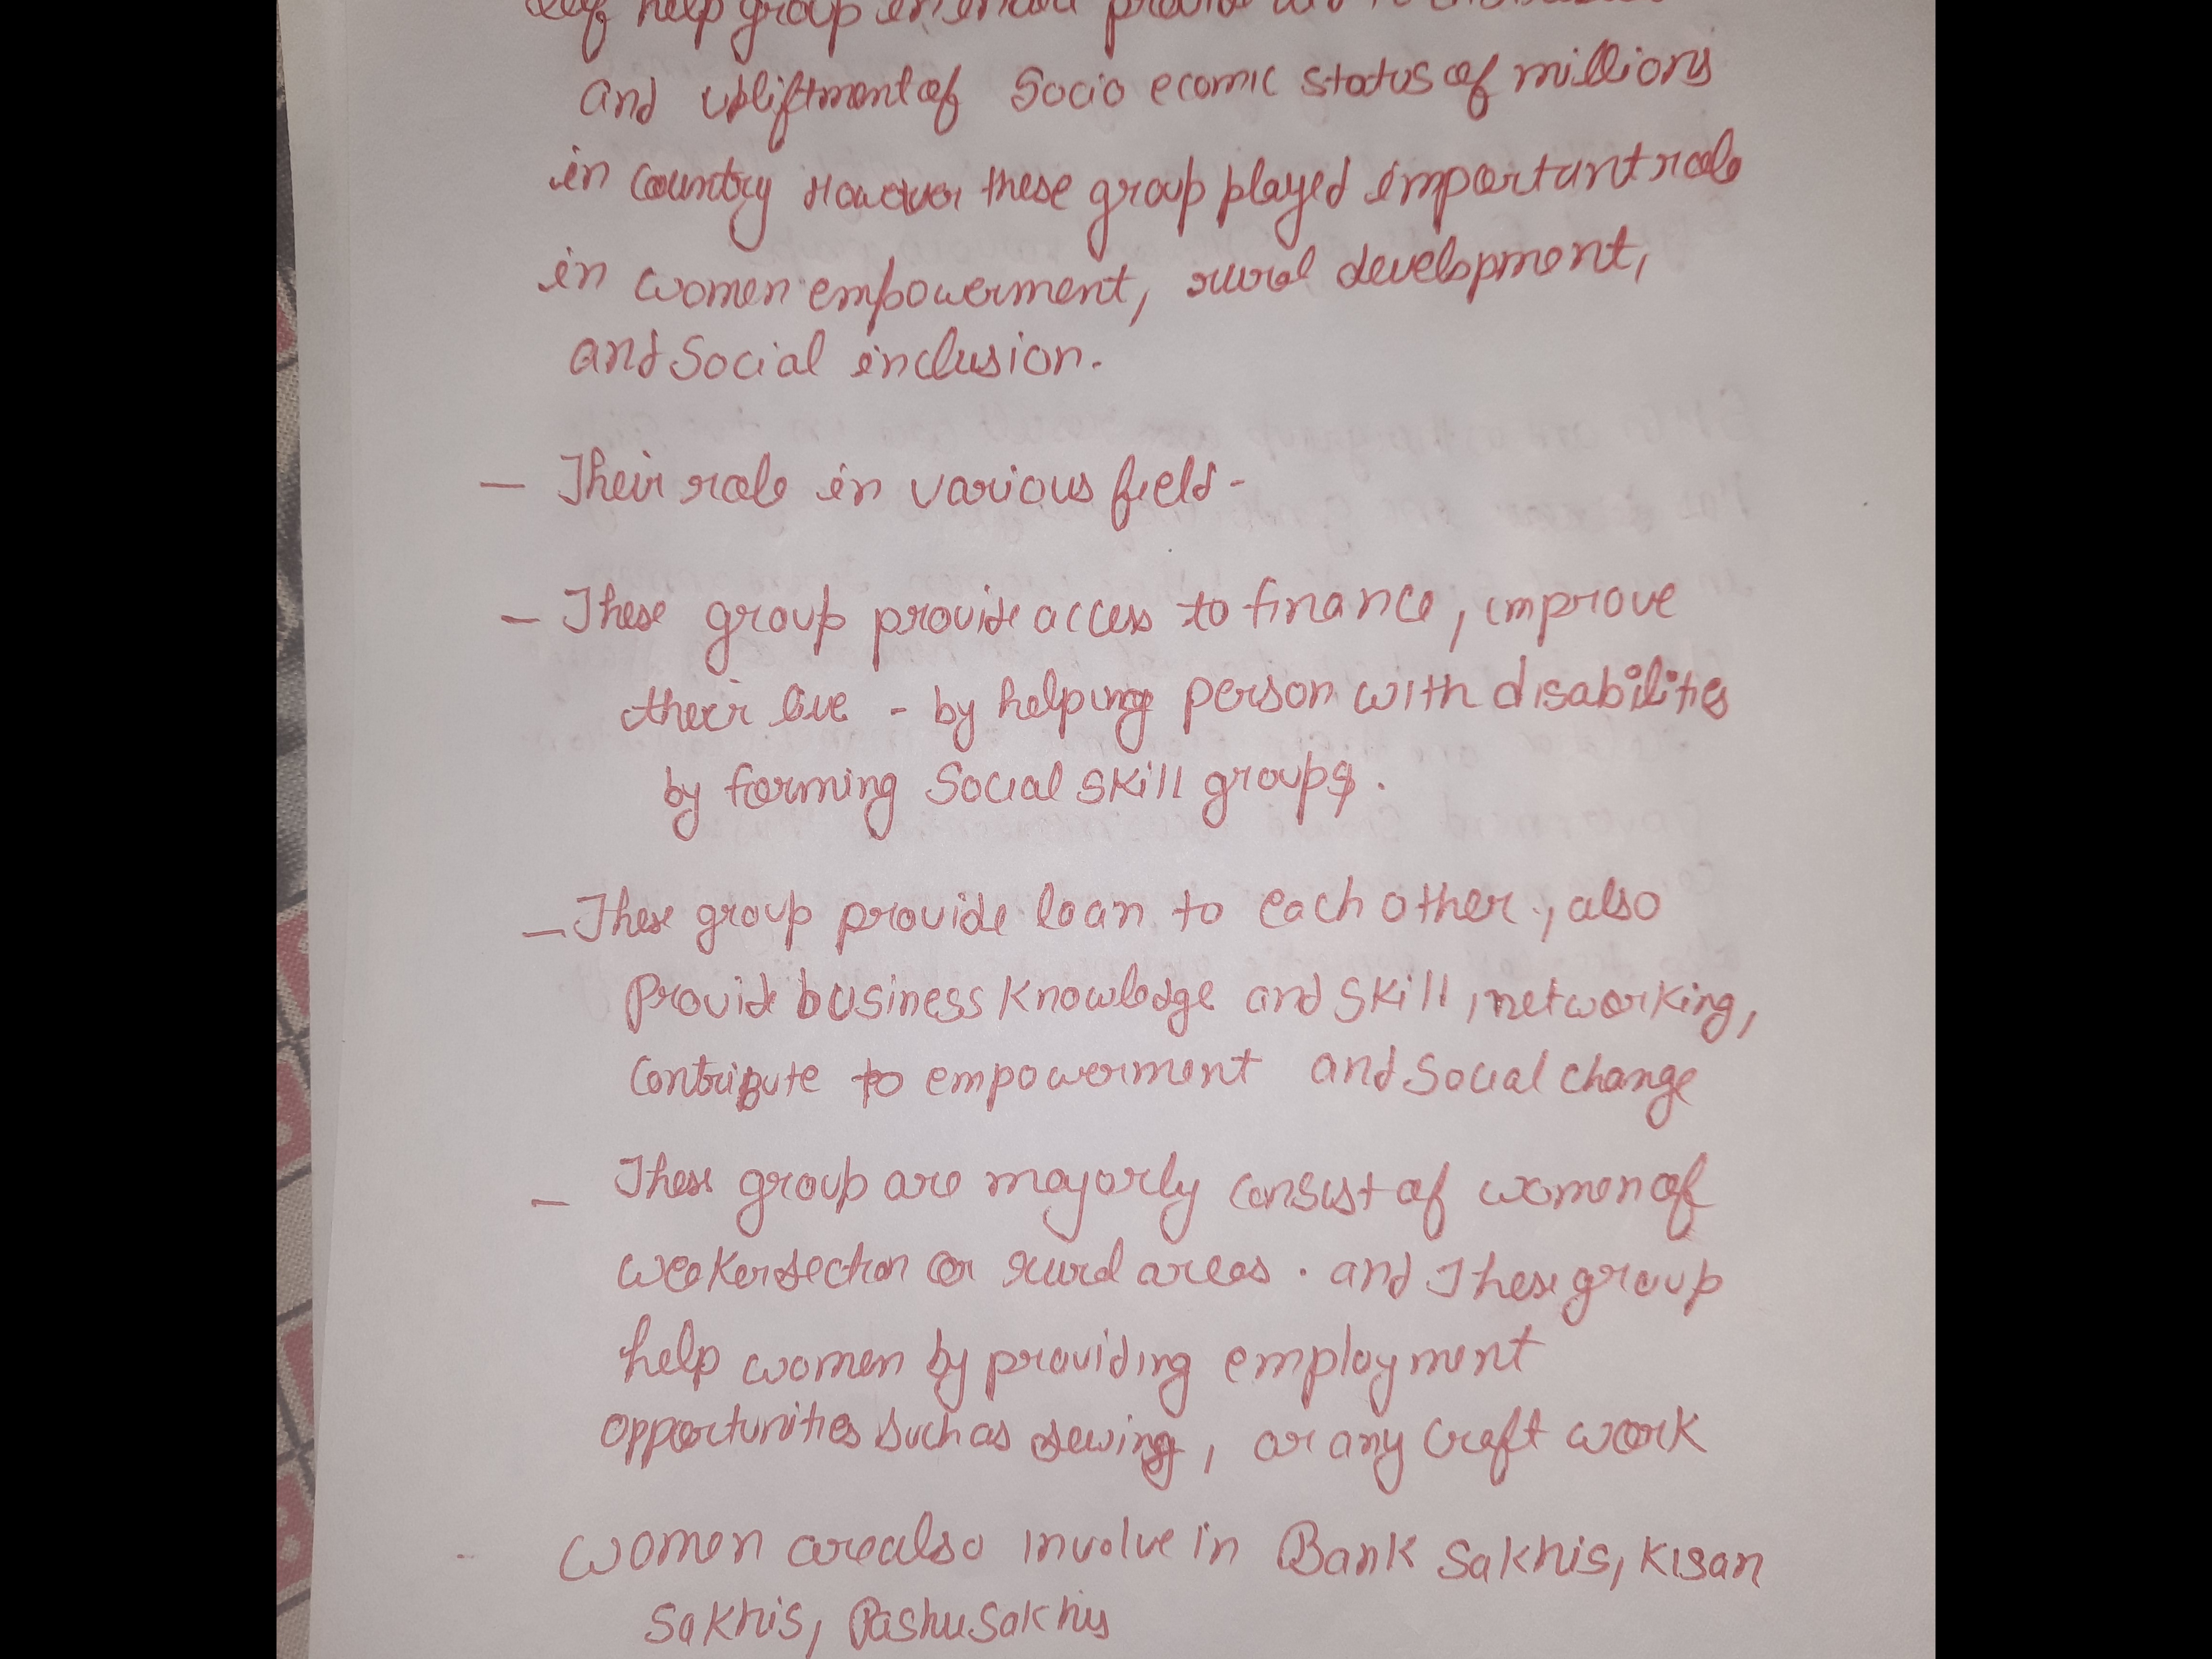 self help group
and upliftment of Socio ecomic status of millions
in country However these group played important role
in women empowerment, rural development,
and Social inclusion.
— Their role in various field -
— These group provide access to finance, improve
their live - by helping person with disabilities
by forming Social skill groups.
— These group provide loan to each other, also
Provide business knowledge and skill, networking,
Contribute to empowerment and Social change
— These group are majorly consist of women of
weaker section or rural areas. and These group
help women by providing employment
opportunities such as sewing, or any craft work
- Women are also involve in Bank Sakhis, Kisan
Sakhis, Pashu Sakhis